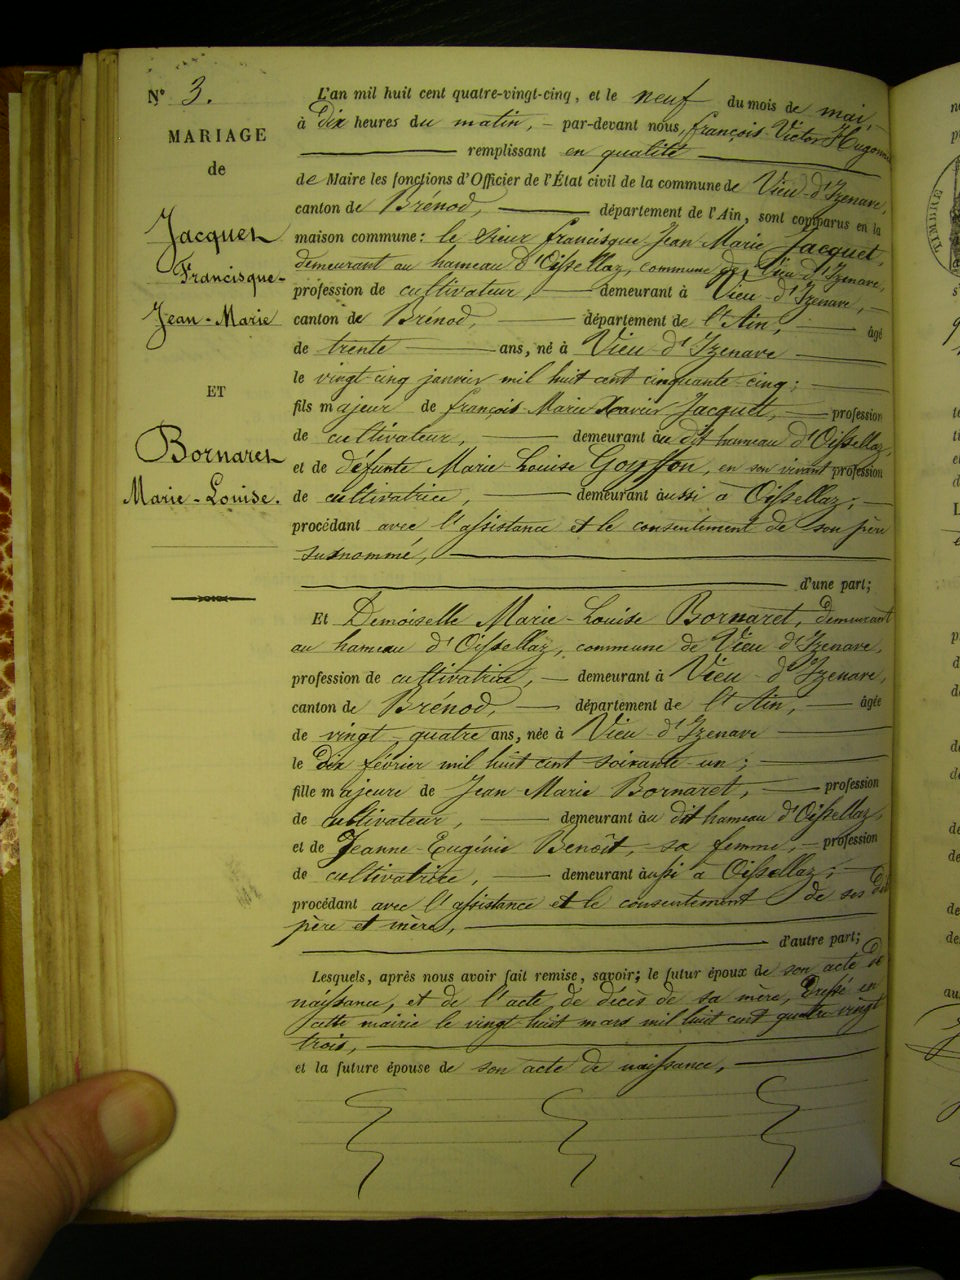 N° 3.
MARIAGE
de
Jacquet
Francisque-
Jean-Marie
ET
Bornaret
Marie-Louise.
L'an mil huit cent quatre-vingt-cinq, et le neuf du mois de mai,
à dix heures du matin, – par-devant nous, françois Victor
remplissant en qualité
de Maire les fonctions d'Officier de l'État civil de la commune de Vieu-d'Izenave,
canton de Brénod, département de l'Ain, sont comparus en la
maison commune: le sieur francisque Jean Marie Jacquet,
demeurant au hameau d'Oisellaz, commune de Vieu d'Izenave,
profession de cultivateur, demeurant à Vieu-d'Izenave,
canton de Brénod, département de l'Ain, âgé
de trente ans, né à Vieu-d'Izenave
le vingt-cinq janvier mil huit cent cinquante-cinq;
fils majeur de françois Marie Xavier Jacquet, profession
de cultivateur, demeurant au dit hameau d'Oissellaz,
et de défunte Marie-Louise Goyffon, en son vivant profession
de cultivatrice, demeurant aussi à Oissellaz;
procédant avec l'assistance et le consentement de son père
susnommé,
d'une part;
Et Demoiselle Marie-Louise Bornaret, demeurant
au hameau d'Oissellaz, commune de Vieu-d'Izenave,
profession de cultivatrice, demeurant à Vieu-d'Izenave,
canton de Brénod, département de l'Ain, âgée
de vingt-quatre ans, née à Vieu-d'Izenave
le dix février mil huit cent soixante-un;
fille majeure de Jean Marie Bornaret, profession
de cultivateur, demeurant au dit hameau d'Oissellaz,
et de Jeanne-Eugénie Benoît, sa femme, profession
de cultivatrice, demeurant aussi à Oissellaz;
procédant avec l'assistance et le consentement de ses dits
père et mère,
d'autre part;
Lesquels, après nous avoir fait remise, savoir; le futur époux de son acte de
naissance, et de l'acte de décès de sa mère, dressé en
cette mairie le vingt huit mars mil huit cent quatre vingt
trois,
et la future épouse de son acte de naissance,
TIMBRE